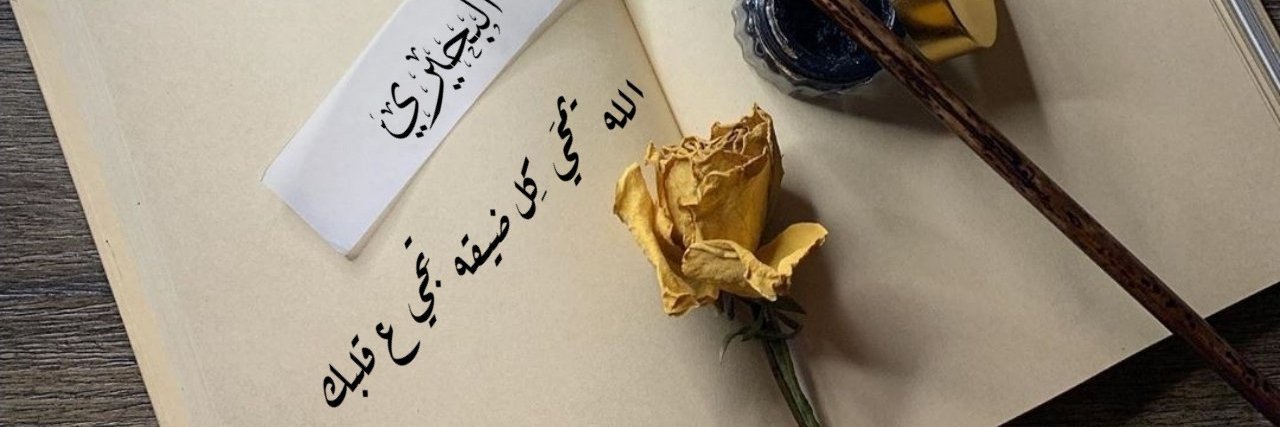 البحيري
الله يمحي كل ضيقه تجي ع قلبك